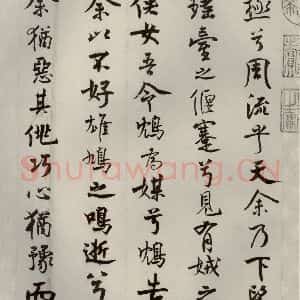 極兮周流乎天余乃下
瑤臺之偃蹇兮見有娀之
佚女吾令鴆為媒兮鴆告
余以不好雄鳩之鳴逝兮
余猶惡其佻巧心猶豫而
Shufawang.CN